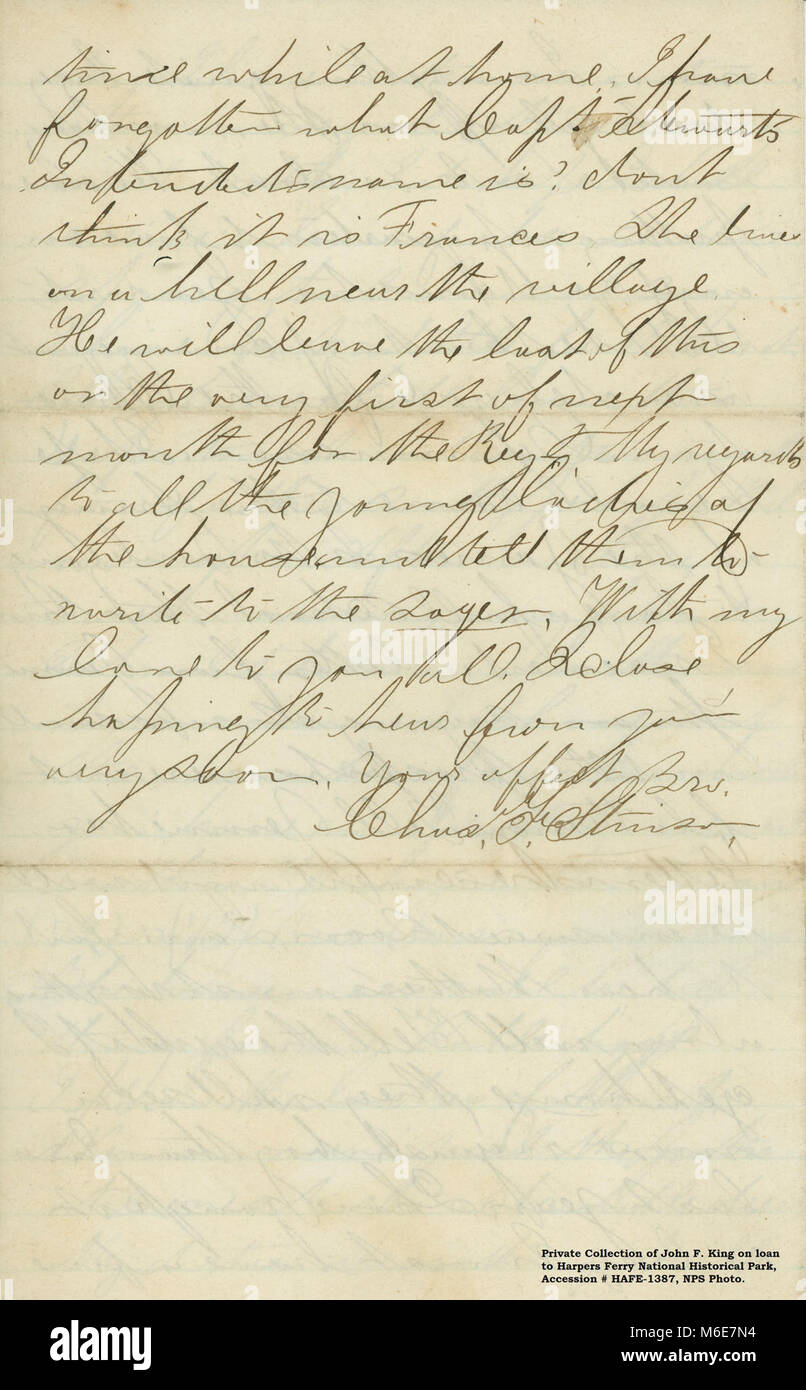 time while at home. I have
forgotten what Capt Stewarts
Intended's name is? dont
think it is Frances. She lives
on a hill near the village.
He will leave the last of this
or the very first of next
month for the Regt. My regards
to all the young Ladies at
the house and tell them to
write to the
With my
love to you all. I close
hoping to hear from you
very soon. Your affect Bro.
Chas. F. Stinson,
Private Collection of John F. King on loan
to Harpers Ferry National Historical Park,
Accession # HAFE-1387, NPS Photo.
alamy
alamy stock photo
M6E7N4
www.alamy.com